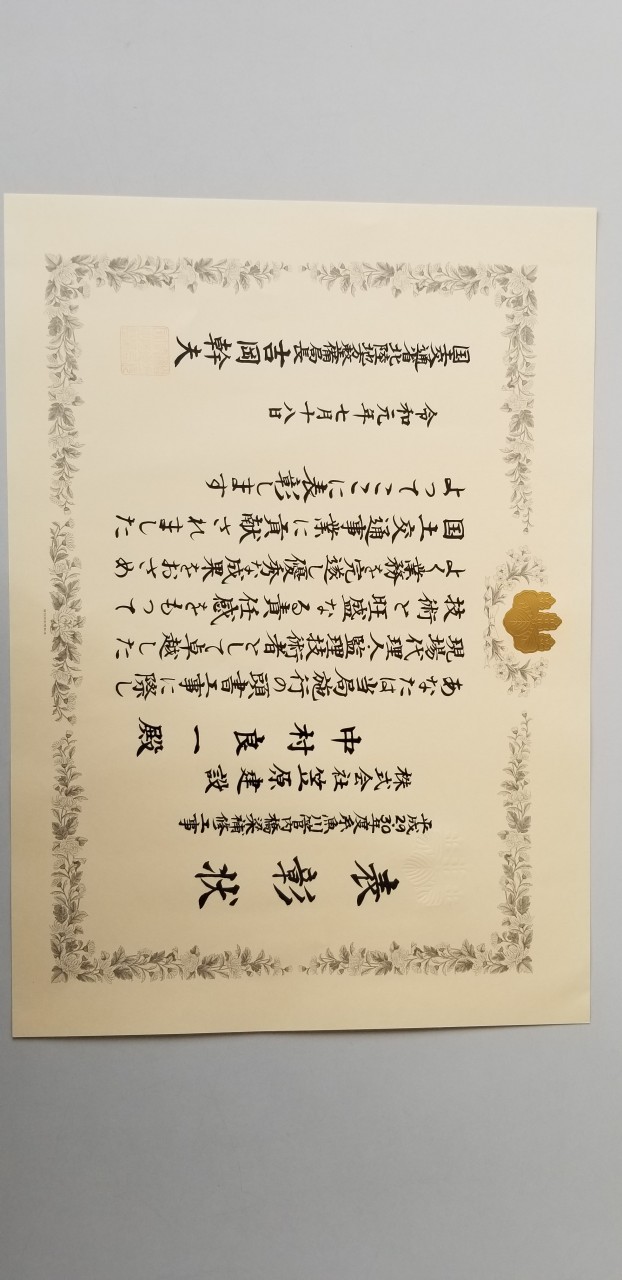 表彰状
平成29・30年度糸魚川管内橋梁補修工事
株式会社笠原建設
中村良一殿
あなたは当局施行の頭書工事に際し
現場代理人監理技術者として卓越した
技術と旺盛なる責任感をもって
よく業務を完遂し優秀な成果をおさめ
国土交通事業に貢献されました
よってここに表彰します
令和元年七月十八日
国土交通省北陸地方整備局長 吉岡幹夫